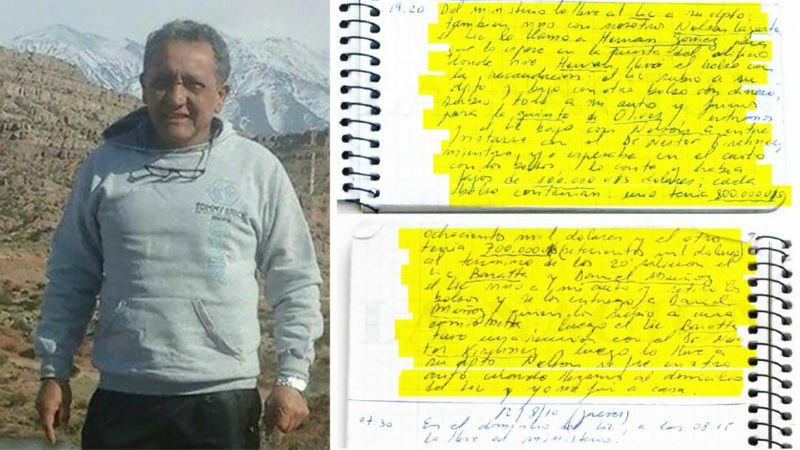 TOMMY
19.20 Del ministerio lo lleve al Lic a su dpto,
tambien vino con nosotros Nelson Lazarte
el Lic lo llamo a Hernan Gomez para
que lo espere en la puerta del edificio
donde vive Hernan, llevó el bolso con
la recaudacion. el Lic subio a su
dpto y bajo con otro bolso con dinero,
subio todo a mi auto y fuimos
para la quinta de Olivos, entramos
el Lic bajo con Nelson a entre
vistarse con el Dr Nestor Kirchner,
mientras yo esperaba en el auto
con los bolsos, lo conte y habia
fajos de 100.000 u$s dolares, cada
bolso contenian: uno tenia 800.000 u$s
ochocientos mil dolares y el otro
tenia 700.000 u$s setecientos mil dolares
al termino de los 20' salieron el
Lic Baratta y Daniel Muñoz
el Lic vino a mi auto y retiro los
bolsos y se los entrego a Daniel
Muñoz quien los subio a una
camioneta, luego el Lic Baratta
tuvo una reunion con el Dr Nes
tor Kirchner y luego lo lleve a
su dpto. Nelson se fue en otro
auto cuando llegamos al domicilio
del Lic y yo me fui a casa.
12/8/10 (jueves)
07.30 En el domicilio del Lic, a las 08.15
lo lleve al ministerio.